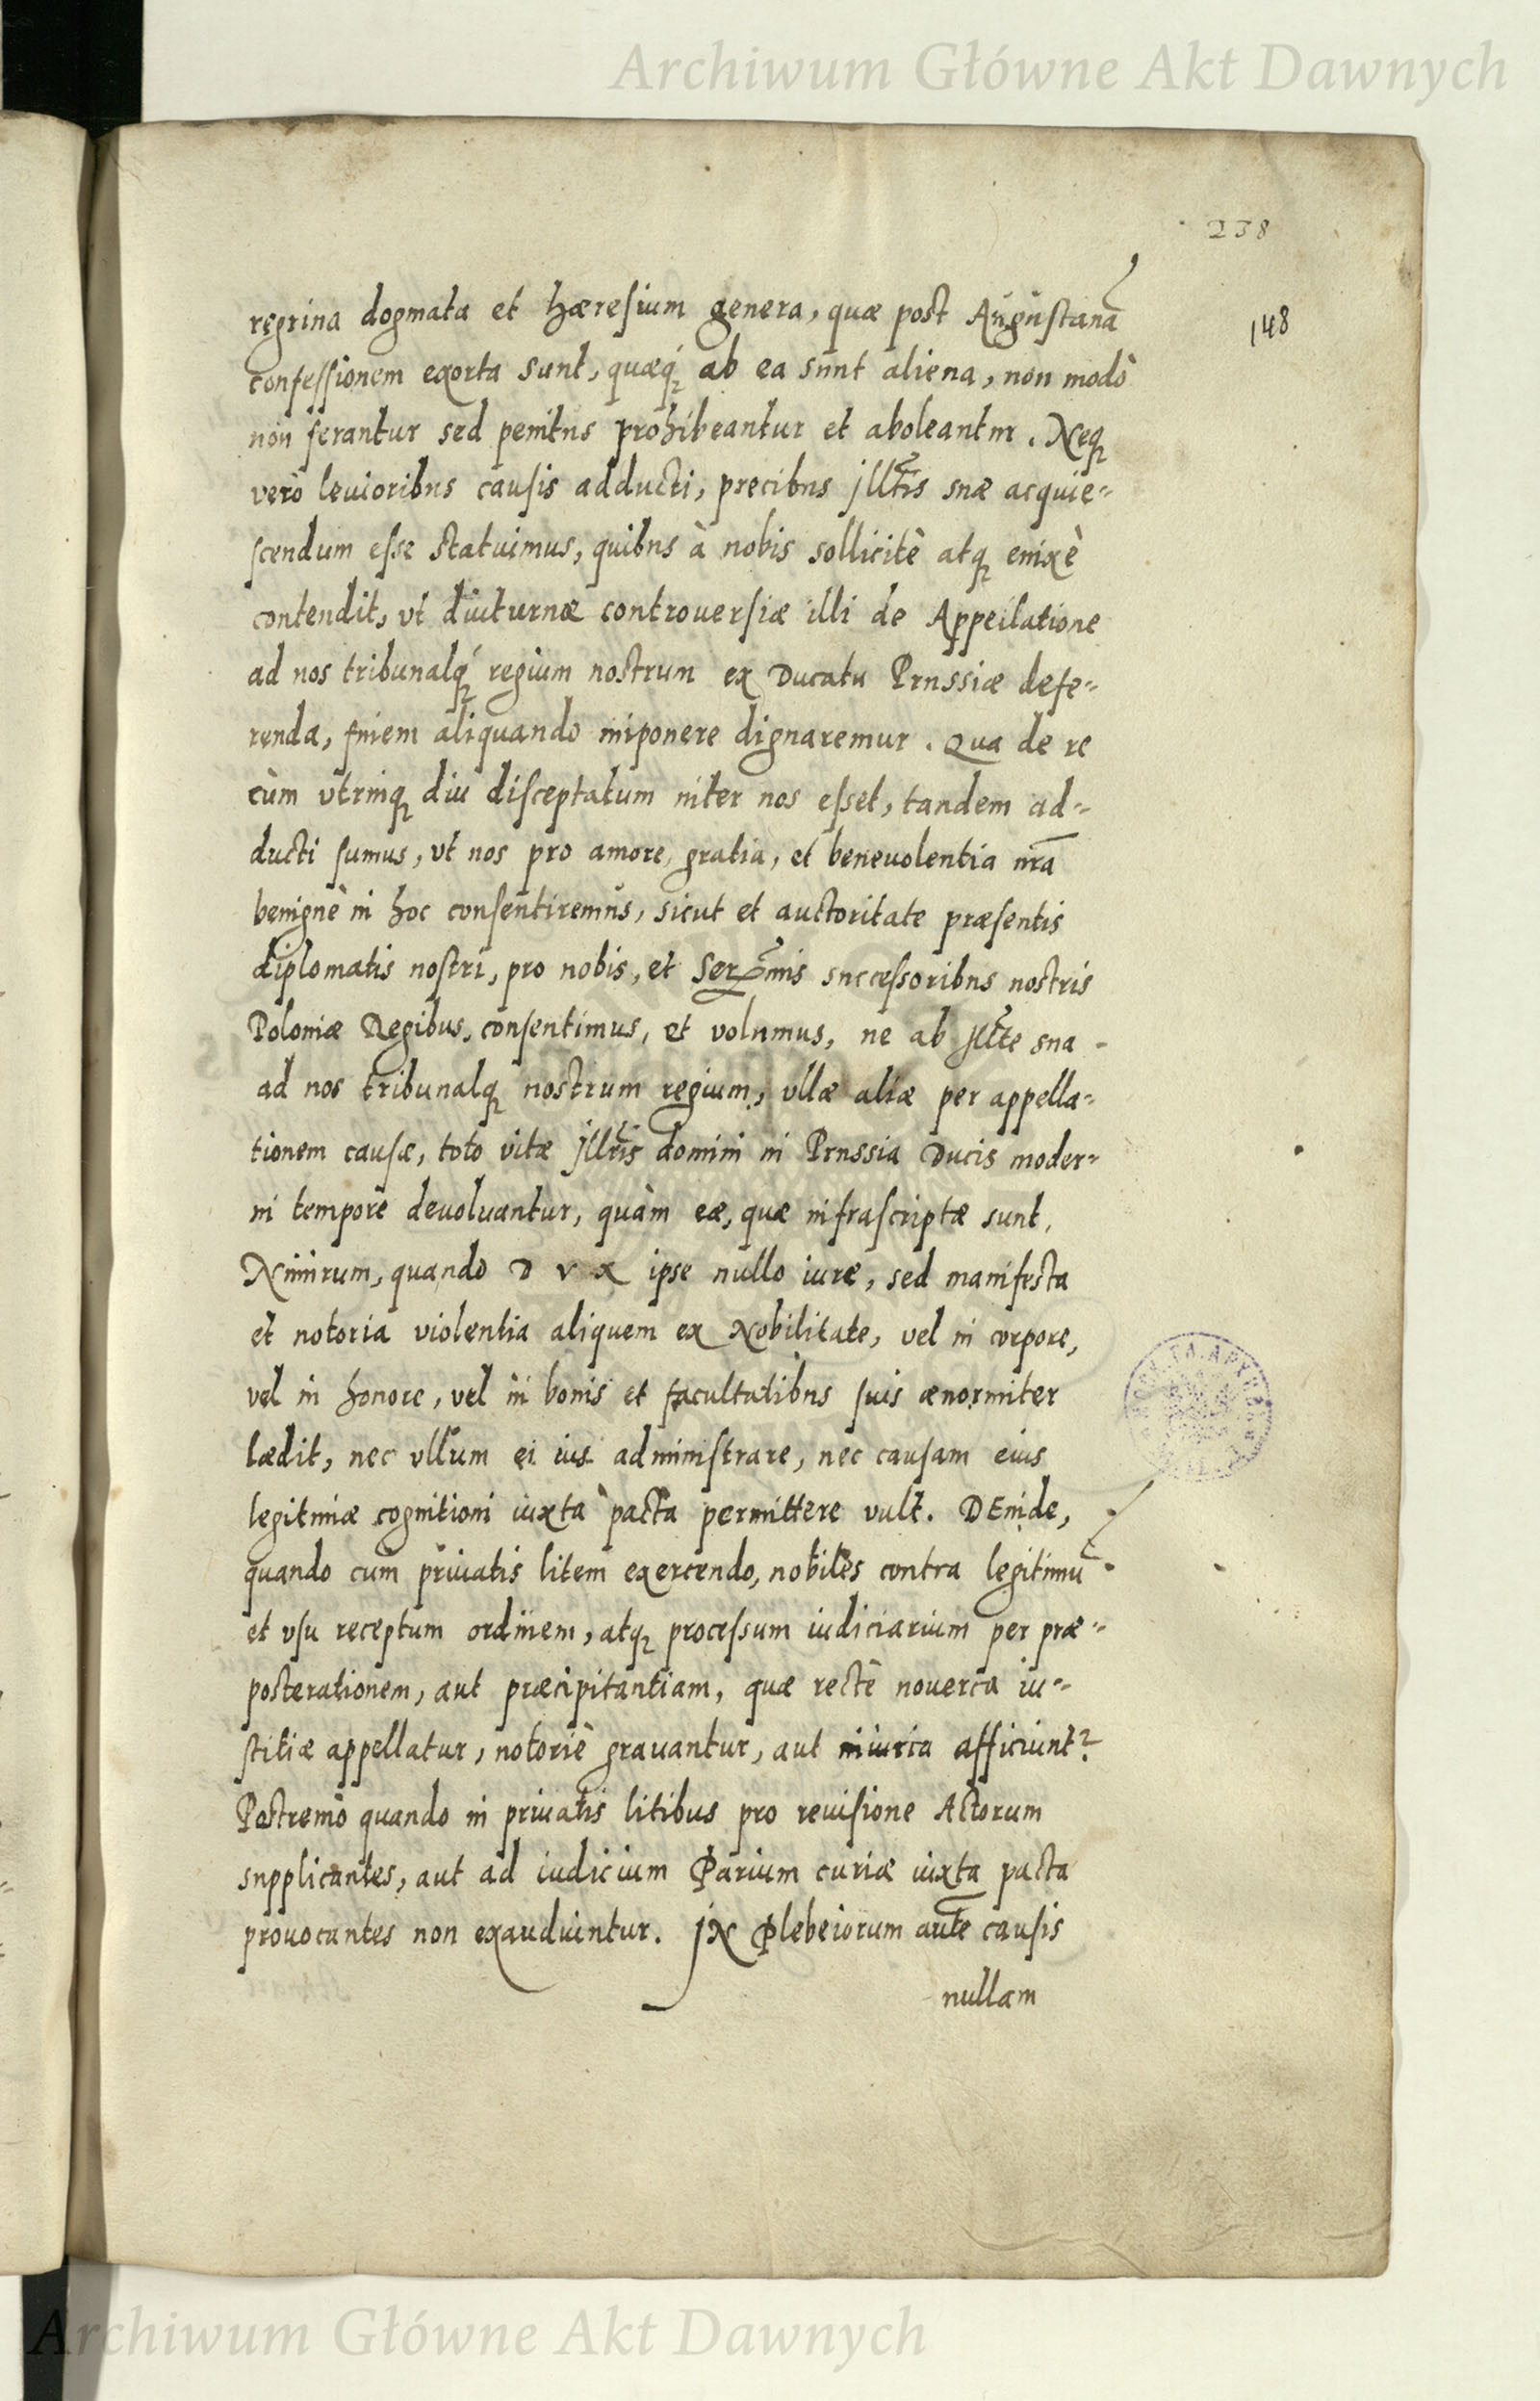 Archiwum Główne Akt Dawnych
238
148
regrina dogmata et hæresium genera, quæ post Augustanā
confessionem exorta sunt, quæq́; ab ea sunt aliena, non modò
non ferantur sed penitus prohibeantur et aboleantur. Neq;
verò leuioribus causis adducti, precibus Jllt̃is suæ acquie=
scendum esse statuimus, quibus à nobis sollicitè atq; enixè
contendit, vt diuturnæ controuersiæ illi de Appellatione
ad nos tribunalq́; regium nostrum ex Ducatu Prussiæ defe=
renda, finem aliquando imponere dignaremur. Qua de re
cùm vtrinq; diu disceptatum inter nos esset, tandem ad=
ducti sumus, vt nos pro amore, gratia, et beneuolentia nr̃a
benignè in hoc consentiremus, sicut et auctoritate præsentis
diplomatis nostri, pro nobis, et Ser̃mis successoribus nostris
Poloniæ Regibus, consentimus, et volumus, ne ab Jllt̃e sua
ad nos tribunalq; nostrum regium, vllæ aliæ per appella=
tionem causæ, toto vitæ Jllr̃is domini in Prussia Ducis moder=
ni tempore deuoluantur, quàm eæ, quæ infrascriptæ sunt,
Nimirum, quando DVX ipse nullo iure, sed manifesta
et notoria violentia aliquem ex Nobilitate, vel in corpore,
vel in honore, vel in bonis et facultatibus suis ænormiter
lædit, nec vllum ei ius administrare, nec causam eius
legitimæ cognitioni iuxta pacta permittere vult. DEinde,
quando cum priuatis litem exercendo, nobiles contra legitimū
et vsu receptum ordinem, atq; processum iudiciarium per præ=
posterationem, aut præcipitantiam, quæ rectè nouerca iu=
stitiæ appellatur, notoriè grauantur, aut iniuria afficiunt?
Postremò quando in priuatis litibus pro reuisione Actorum
supplicantes, aut ad iudicium Parium curiæ iuxta pacta
prouocantes non exaudiuntur. JN Plebeiorum aut̃e causis
nullam
Archiwum Główne Akt Dawnych